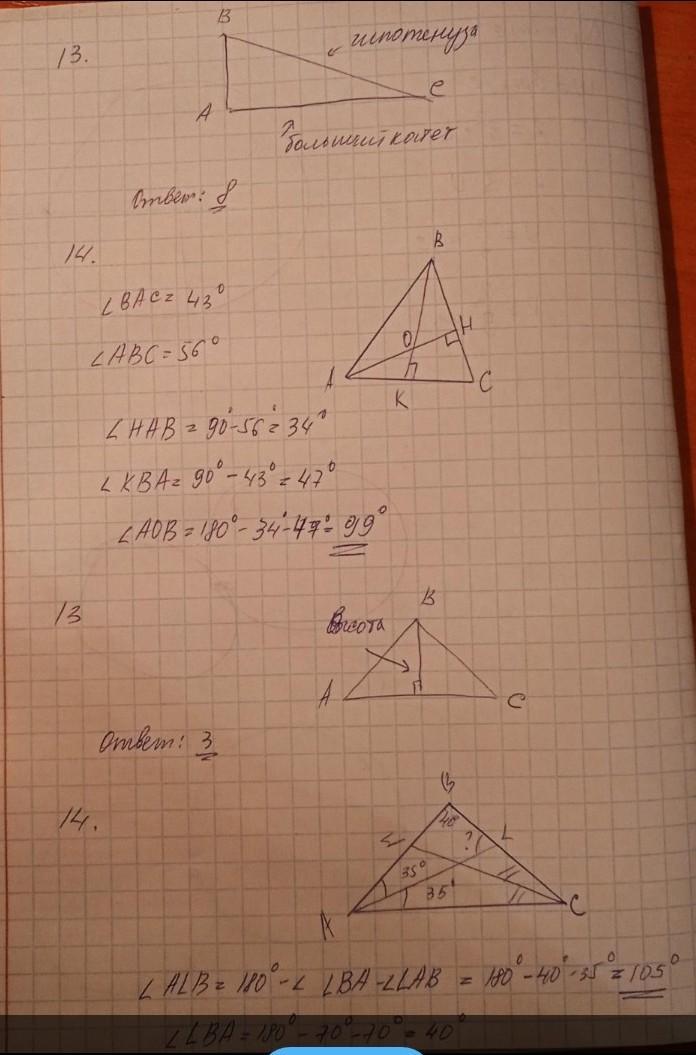 13.
B
гипотенуза
A
C
больший катет
Ответ: 8
14.
B
∠BAC = 43°
∠ABC = 56°
O
H
A
K
C
∠HAB = 90°-56° = 34°
∠KBA = 90° - 43° = 47°
∠AOB = 180° - 34° - 47° = 99°
13
B
Высота
A
C
Ответ: 3
14.
B
40°
?
L
35°
35°
A
C
∠ALB = 180° - ∠ LBA - ∠LAB = 180° - 40° - 35° = 105°
∠LBA = 180° - 70° - 70° = 40°